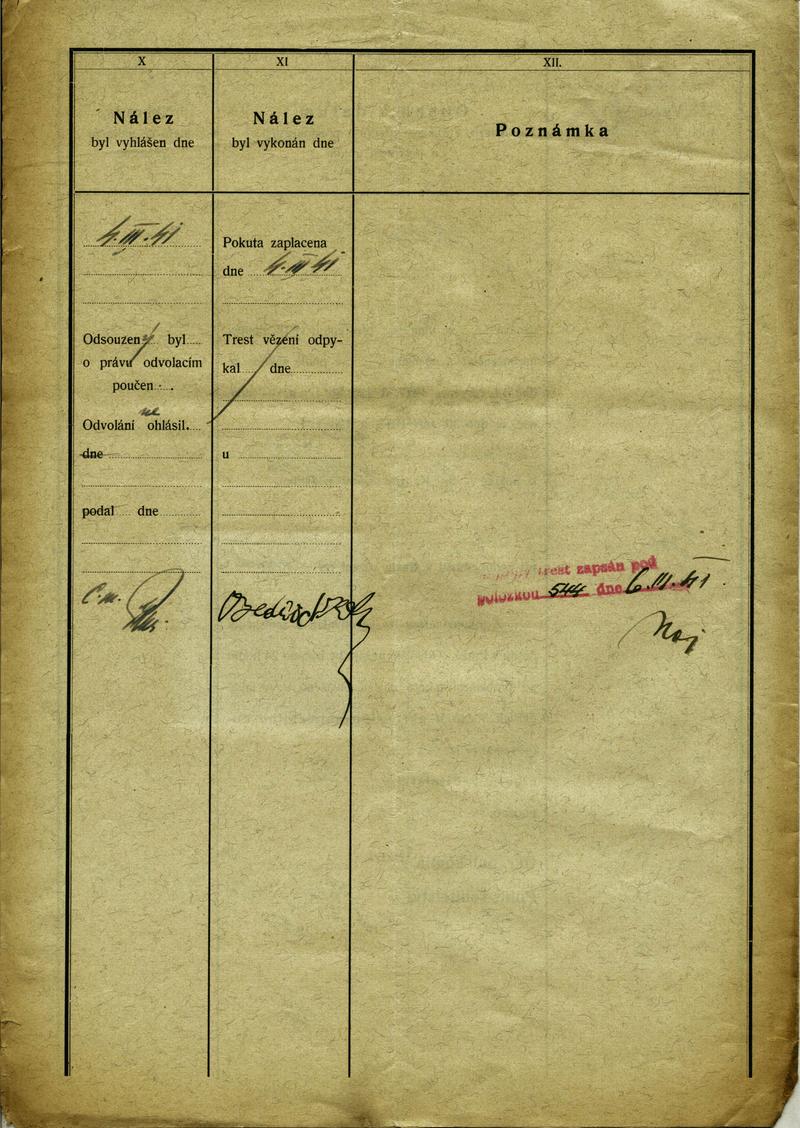 X
Nález
byl vyhlášen dne
4.III.41
Odsouzen byl
o právu odvolacím
poučen
ne
Odvolání ohlásil.
dne
podal dne
XI
Nález
byl vykonán dne
Pokuta zaplacena
dne 4.III 41
Trest vězení odpy-
kal dne
u
XII.
Poznámka
trest zapsán pod
položkou 544 dne 6.III.41